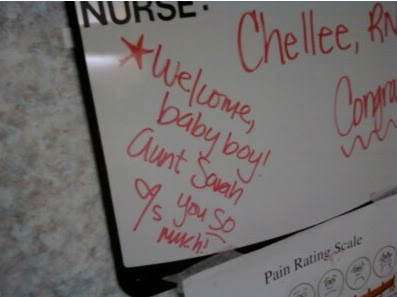 NURSE:
Chellee, RN
★ Welcome,
baby boy!
Aunt Sarah
♡s you so
much!
Congra
Pain Rating Scale